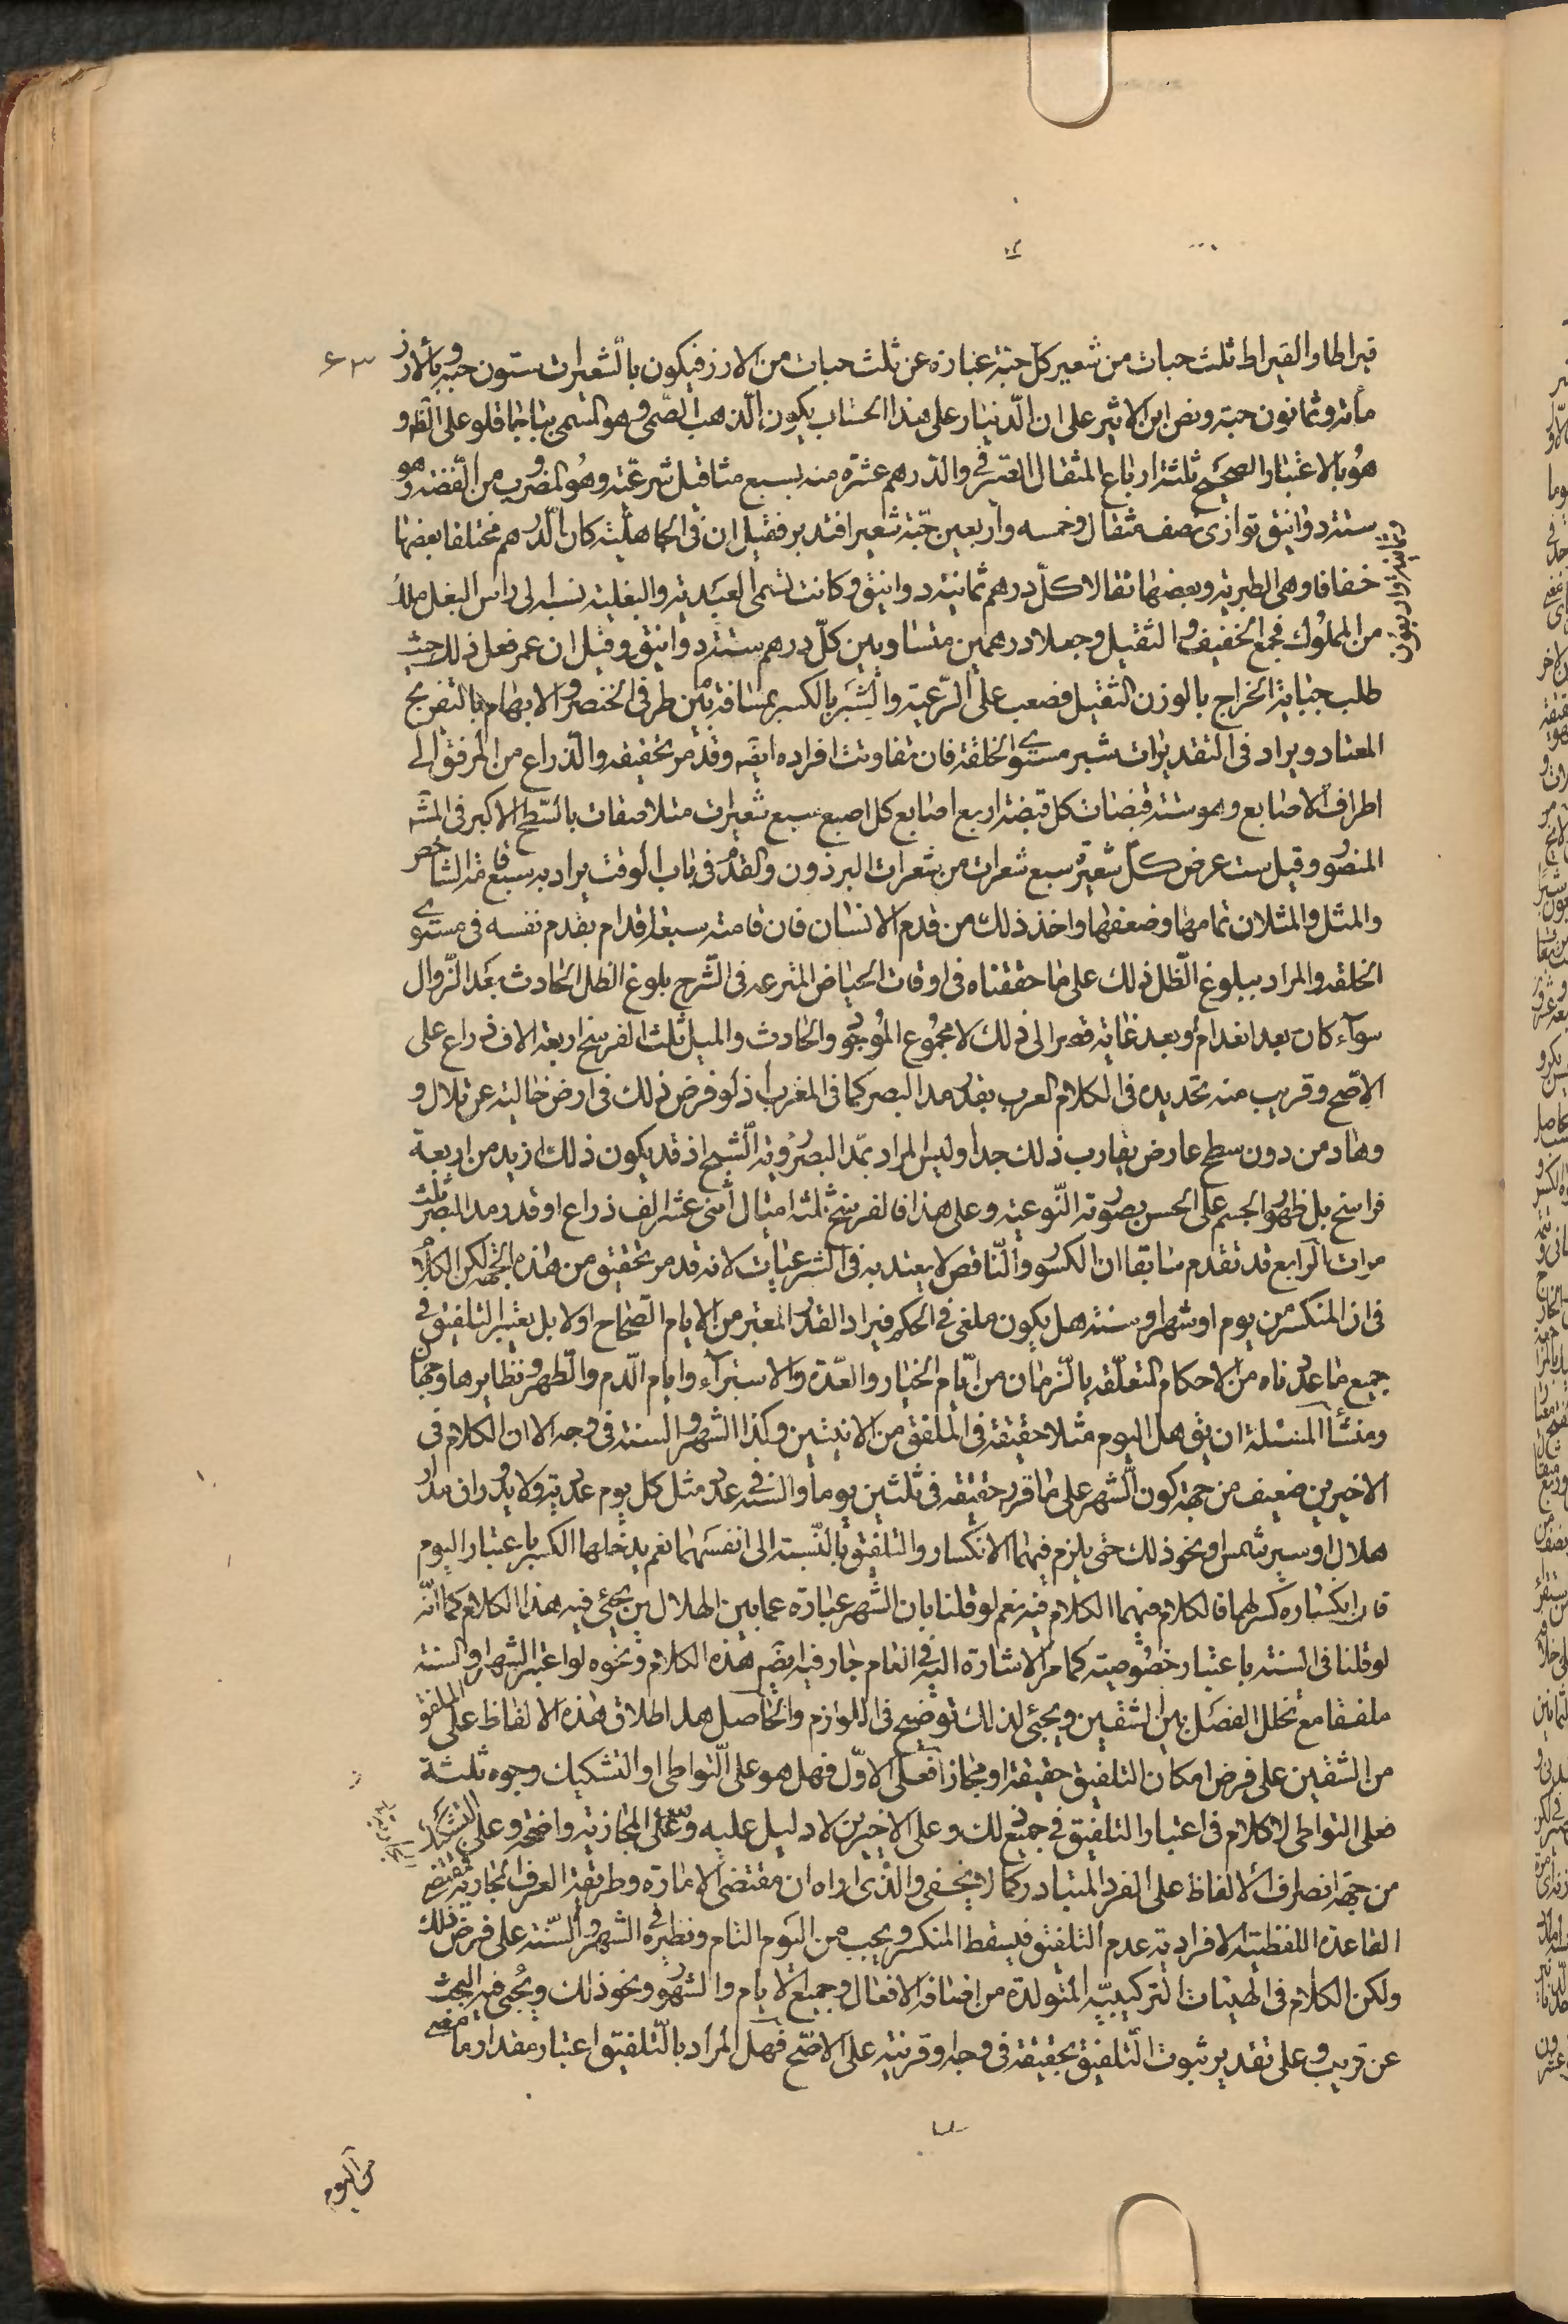 قيراطا والقيراط ثلث حبات من شعير كل حبة عبارة عن ثلث حبات من الارز فيكون بالشعيرات ستون حبة وبالارز
مأته وثمانون حبة ونص ابن الاثير على ان الدينار على هذا الحساب يكون الذهب الصنمى وهو المسمى
هو بالاعتبار الصحيح ثلثة ارباع المثقال الصيرفي والدرهم عشرة منه بسبع مثاقيل شرعية وهو المضروب من الفضة وهو
ستة دوانيق توازى نصف مثقال وخمسه وأربعين حبة شعير افتدبر فقيل ان في الجاهلية كان الدرهم مختلفا بعضها
خفافا وهى الطبرية وبعضها ثقالا كل درهم ثمانية دوانيق وكانت تسمى العبدية والبغلية نسبة الى راس البغل ملك
من الملوك فجمع الخفيف والثقيل وجعلا درهمين متساويين كل درهم ستة دوانيق وقيل ان عمر فعل ذلك حيث
طلب جباية الخراج بالوزن الثقيل فصعب على الرعية والشبر بالكسر مسافة بين طرفي الخنصر والابهام بالتفريج
المعتاد ويراد فى التقديرات شبر مستوى الخلقة فان تفاوتت افراده ايضه وقد مر تحقيقه والذراع من المرفق الى
اطراف الاصابع وهو ستة قبضات كل قبضة اربع اصابع كل اصبع سبع شعيرات متلاصقات بالسطح الاكبر فى المشه
المنصور وقيل ست عرض كل شعيرة سبع شعرات من شعرات البرذون والقدم فى باب الوقت يراد به سبع قد الشاخص
والمثل والمثلان تمامها وضعفها واخذ ذلك من قدم الانسان فان قامته سبعة اقدام بقدم نفسه فى مستوى
الخلقه والمراد ببلوغ الظل ذلك على ما حققناه فى اوقات الحياض المترعه فى الشرح بلوغ الظل الحادث بعد الزوال
سوآء كان بعد انعدام او بعد غاية قصره الى ذلك لا مجموع الموجود والحادث والميل ثلث الفرسخ اربعة الاف ذراع على
الاصح وقريب منه تحديده فى الكلام العرب بقدر مد البصر كما فى المغرب اذ لو فرض ذلك فى ارض خالية عن تلال و
وهاد من دون سطح عارض يقارب ذلك جدا وليس المراد بمد البصر رؤية الشبح اذ قد يكون ذلك ازيد من اربعة
فراسخ بل ظهور الجسم على الحس بصورته النوعية وعلى هذا فالفرسخ ثلثة اميال اثنى عشر الف ذراع او قدر مد البصر ثلث
مرات الرابع قد تقدم سابقا ان الكسور والناقص لا يعتد به فى الشرعيات لانه قد مر تحقيق من هذه الجهة لكن الكلام
فى ان المنكسر من يوم او شهر او سنة هل يكون ملغى فى الحكم فيراد القدر المعتبر من الايام الصحاح او لا بل يعتبر التلفيق فى
جميع ما عددناه من الاحكام المتعلقة بالزمان من ايام الخيار والعدة والاستبرآء وايام الدم والطهر ونظايرها وجهان
ومنشأ المسئلة ان يق هل اليوم مثلا حقيقة فى الملفق من الاثنين وكذا الشهر والسنة فى وجه الا ان الكلام فى
الاخيرين ضعيف من جهة كون الشهر على ما قرر حقيقة فى ثلثين يوما والسنة فى عدد مثل كل يوم عددية ولا يدوران مدار
هلال او سير شمس او نحو ذلك حتى يلزم فيهما الانكسار والتلفيق بالنسبة الى انفسهما نعم يدخلها الكسر باعتبار اليوم
فان انكسار كسر لهما فالكلام فيهما الكلام فيه نعم لو قلنا بان الشهر عبارة عما بين الهلالين يجئ فيه هذا الكلام كما انه
لو قلنا فى السنة باعتبار خصوصيته كما مر الاشارة اليه فى العام جار فيه ايضه هذه الكلام ونحوه لو اعتبر الشهر او السنة
ملفقا مع تخلل الفصل بين الشقين ويجئ لذلك توضيح فى اللوازم والحاصل هل اطلاق هذه الالفاظ على الملفق
من الشقين على فرض امكان التلفيق حقيقة او مجاز فعلى الاول فهل هو على التواطى او التشكيك وجوه ثلثة
فعلى التواطى لا كلام فى اعتبار التلفيق فى جميع ذلك وعلى الاخيرين لا دليل عليه وعلى المجازية واضحة وعلى التشكيك
من جهة انصراف الالفاظ على الفرد المتبادر كما لا يخفى والذى اراه ان مقتضى الامارة وطريقة العرف الجارية مقتضى
القاعدة اللفظية الافرادية عدم التلفيق فيسقط المنكسر ويجب من اليوم التام ونظيره فى الشهر والسنة على فرض ذلك
ولكن الكلام فى الهيئات التركيبية المتولدة من اضافة الافعال وجميع الايام والشهور ونحو ذلك ويجئ فيه البحث
عن قريب وعلى تقدير ثبوت التلفيق بحقيقة فى وجه او قرينة على الاصح فهل المراد بالتلفيق اعتبار مقدار ما مضى
من اليوم